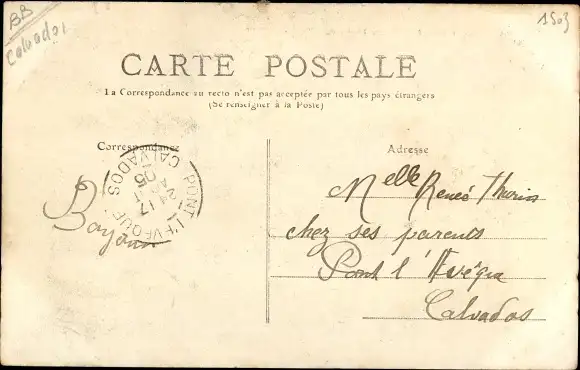 BB
Calvados
1503
CARTE POSTALE
La Correspondance au recto n'est pas acceptée par tous les pays étrangers
(Se renseigner à la Poste)
Correspondance
Adresse
PONT L'EVEQUE
CALVADOS
17
05
Melle Renée Thorin
chez ses parents
Pont l'Evéque
Calvados